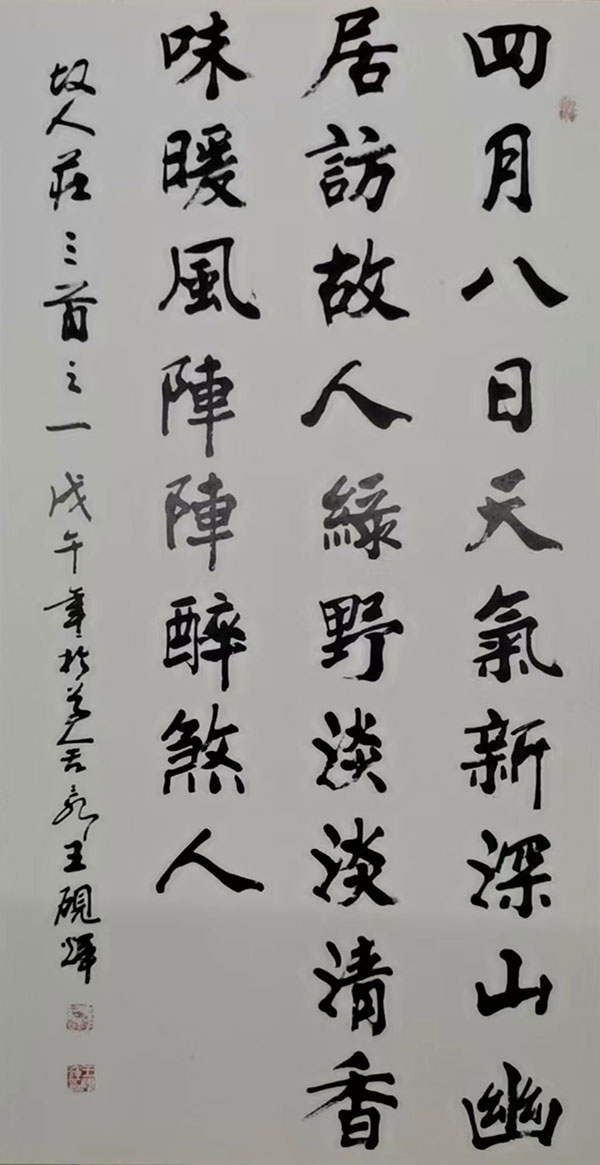 四月八日天氣新深山幽
居訪故人綠野淡淡清香
味暖風陣陣醉煞人
故人莊三首之一戊午年於王硯輝